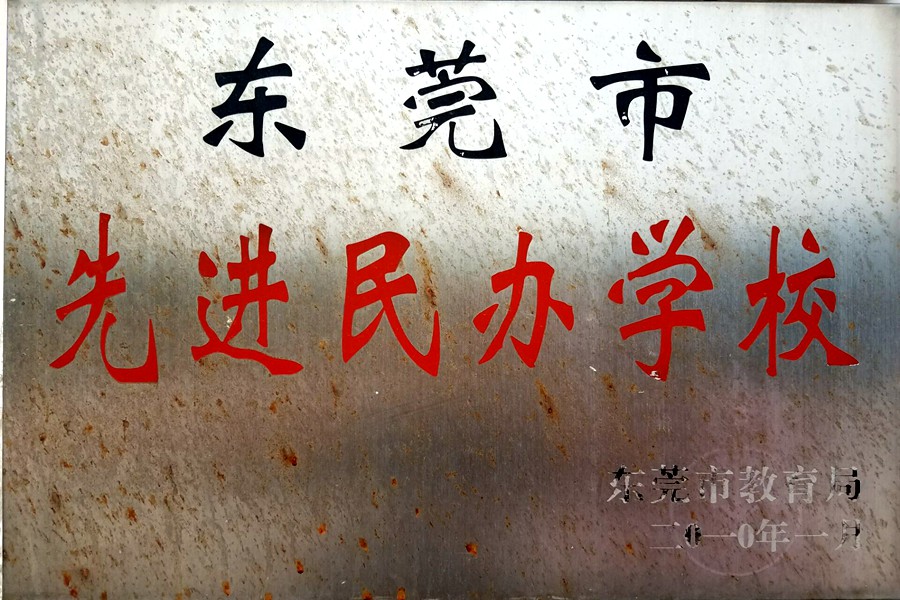 东莞市
先进民办学校
东莞市教育局
二0一0年一月